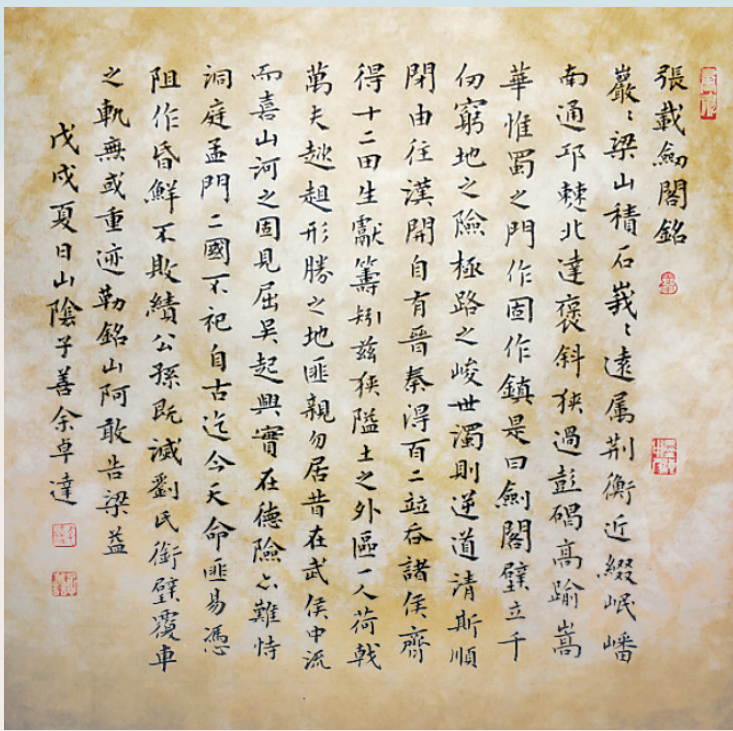 張載劒閣銘
巖〻梁山積石峩〻遠属荆衡近綴岷嶓
南通邛棘北達褒斜狹過彭碣高踰嵩
華惟蜀之門作固作鎮是曰劒閣壁立千
仞窮地之險極路之峻世濁則逆道清斯順
閉由往漢開自有晉秦得百二竝吞諸侯齊
得十二田生獻籌矧茲狹隘土之外區一人荷戟
萬夫趑趄形勝之地匪親勿居昔在武侯中流
而喜山河之固見屈吳起興實在德險亦難恃
洞庭孟門二國不祀自古迄今天命匪易憑
阻作昏鮮不敗績公孫既滅劉氏銜璧覆車
之軌無或重迹勒銘山阿敢告梁益
戊戌夏日山陰子善余卓達